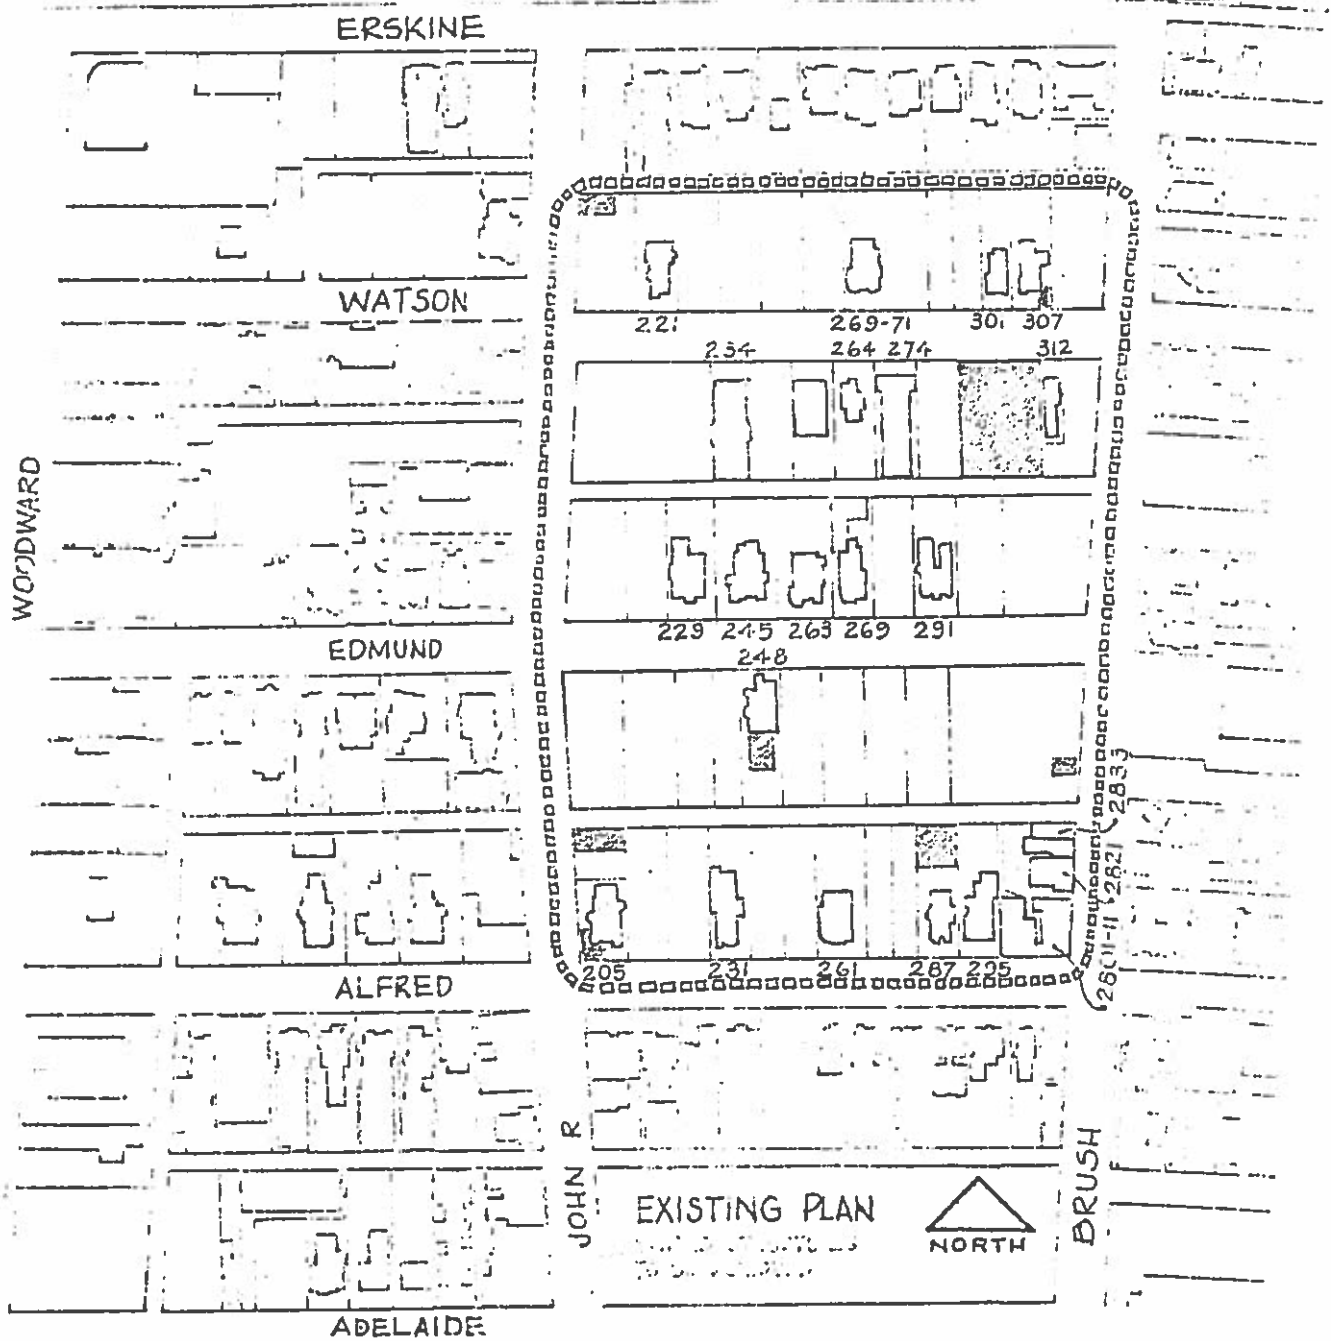 ERSKINE
WATSON
221 269-71 301 307
234 264 274 312
WOODWARD
229 245 263 269 291
EDMUND
248
2833
2821
205 231 261 287 295
ALFRED
JOHN R
BRUSH
EXISTING PLAN
NORTH
ADELAIDE